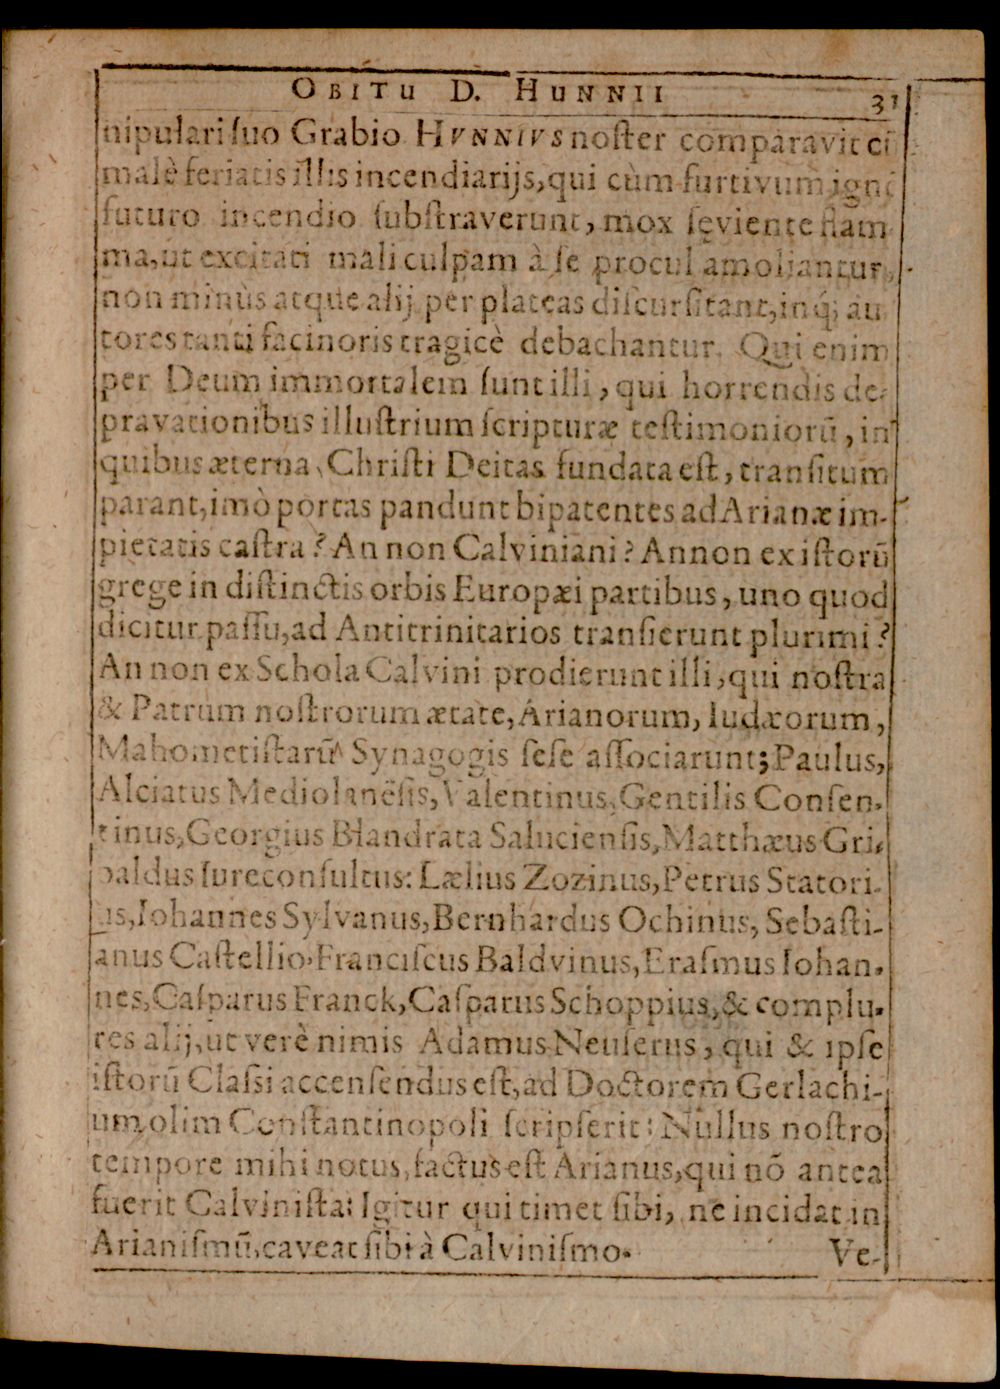 OBITU D. HUNNII 31
nipulari suo Grabio HVNNIVS noster comparavit cū
malè feriatis illis incendiarijs, qui cùm furtivum ignē
futuro incendio substraverunt, mox sęviente flam
ma, ut excitati mali culpam à se procul amoliantur,
non minùs atque alij per plateas discursitant, inq́; au
tores tanti facinoris tragicè debachantur. Qui enim
per Deum immortalem sunt illi, qui horrendis de-
pravationibus illustrium scripturæ testimoniorū, in
quibus æterna Christi Deitas fundata est, transitum
parant, imò portas pandunt bipatentes ad Arianæ im-
pietatis castra? An non Calviniani? Annon ex istorū
grege in distinctis orbis Europæi partibus, uno quod
dicitur passu, ad Antitrinitarios transierunt plurimi?
An non ex Schola Calvini prodierunt illi, qui nostra
& Patrum nostrorum ætate, Arianorum, Iudæorum,
Mahometistarū Synagogis sese associarunt; Paulus,
Alciatus Mediolanēsis, Valentinus, Gentilis Consen-
tinus, Georgius Blandrata Saluciensis, Matthæus Gri-
baldus Iureconsultus: Lælius Zozinus, Petrus Statori-
us, Iohannes Sylvanus, Bernhardus Ochinus, Sebasti-
anus Castellio. Franciscus Baldvinus, Erasmus Iohan-
nes, Casparus Franck, Casparus Schoppius, & complu-
res alij, ut verè nimis Adamus Neuserus, qui & ipse
istorū Classi accensendus est, ad Doctorem Gerlachi-
um olim Constantinopoli scripserit: Nullus nostro
tempore mihi notus, factus est Arianus, qui nō antea
fuerit Calvinista: Igitur qui timet sibi, ne incidat in
Arianismū, caveat sibi à Calvinismo.
Ve-